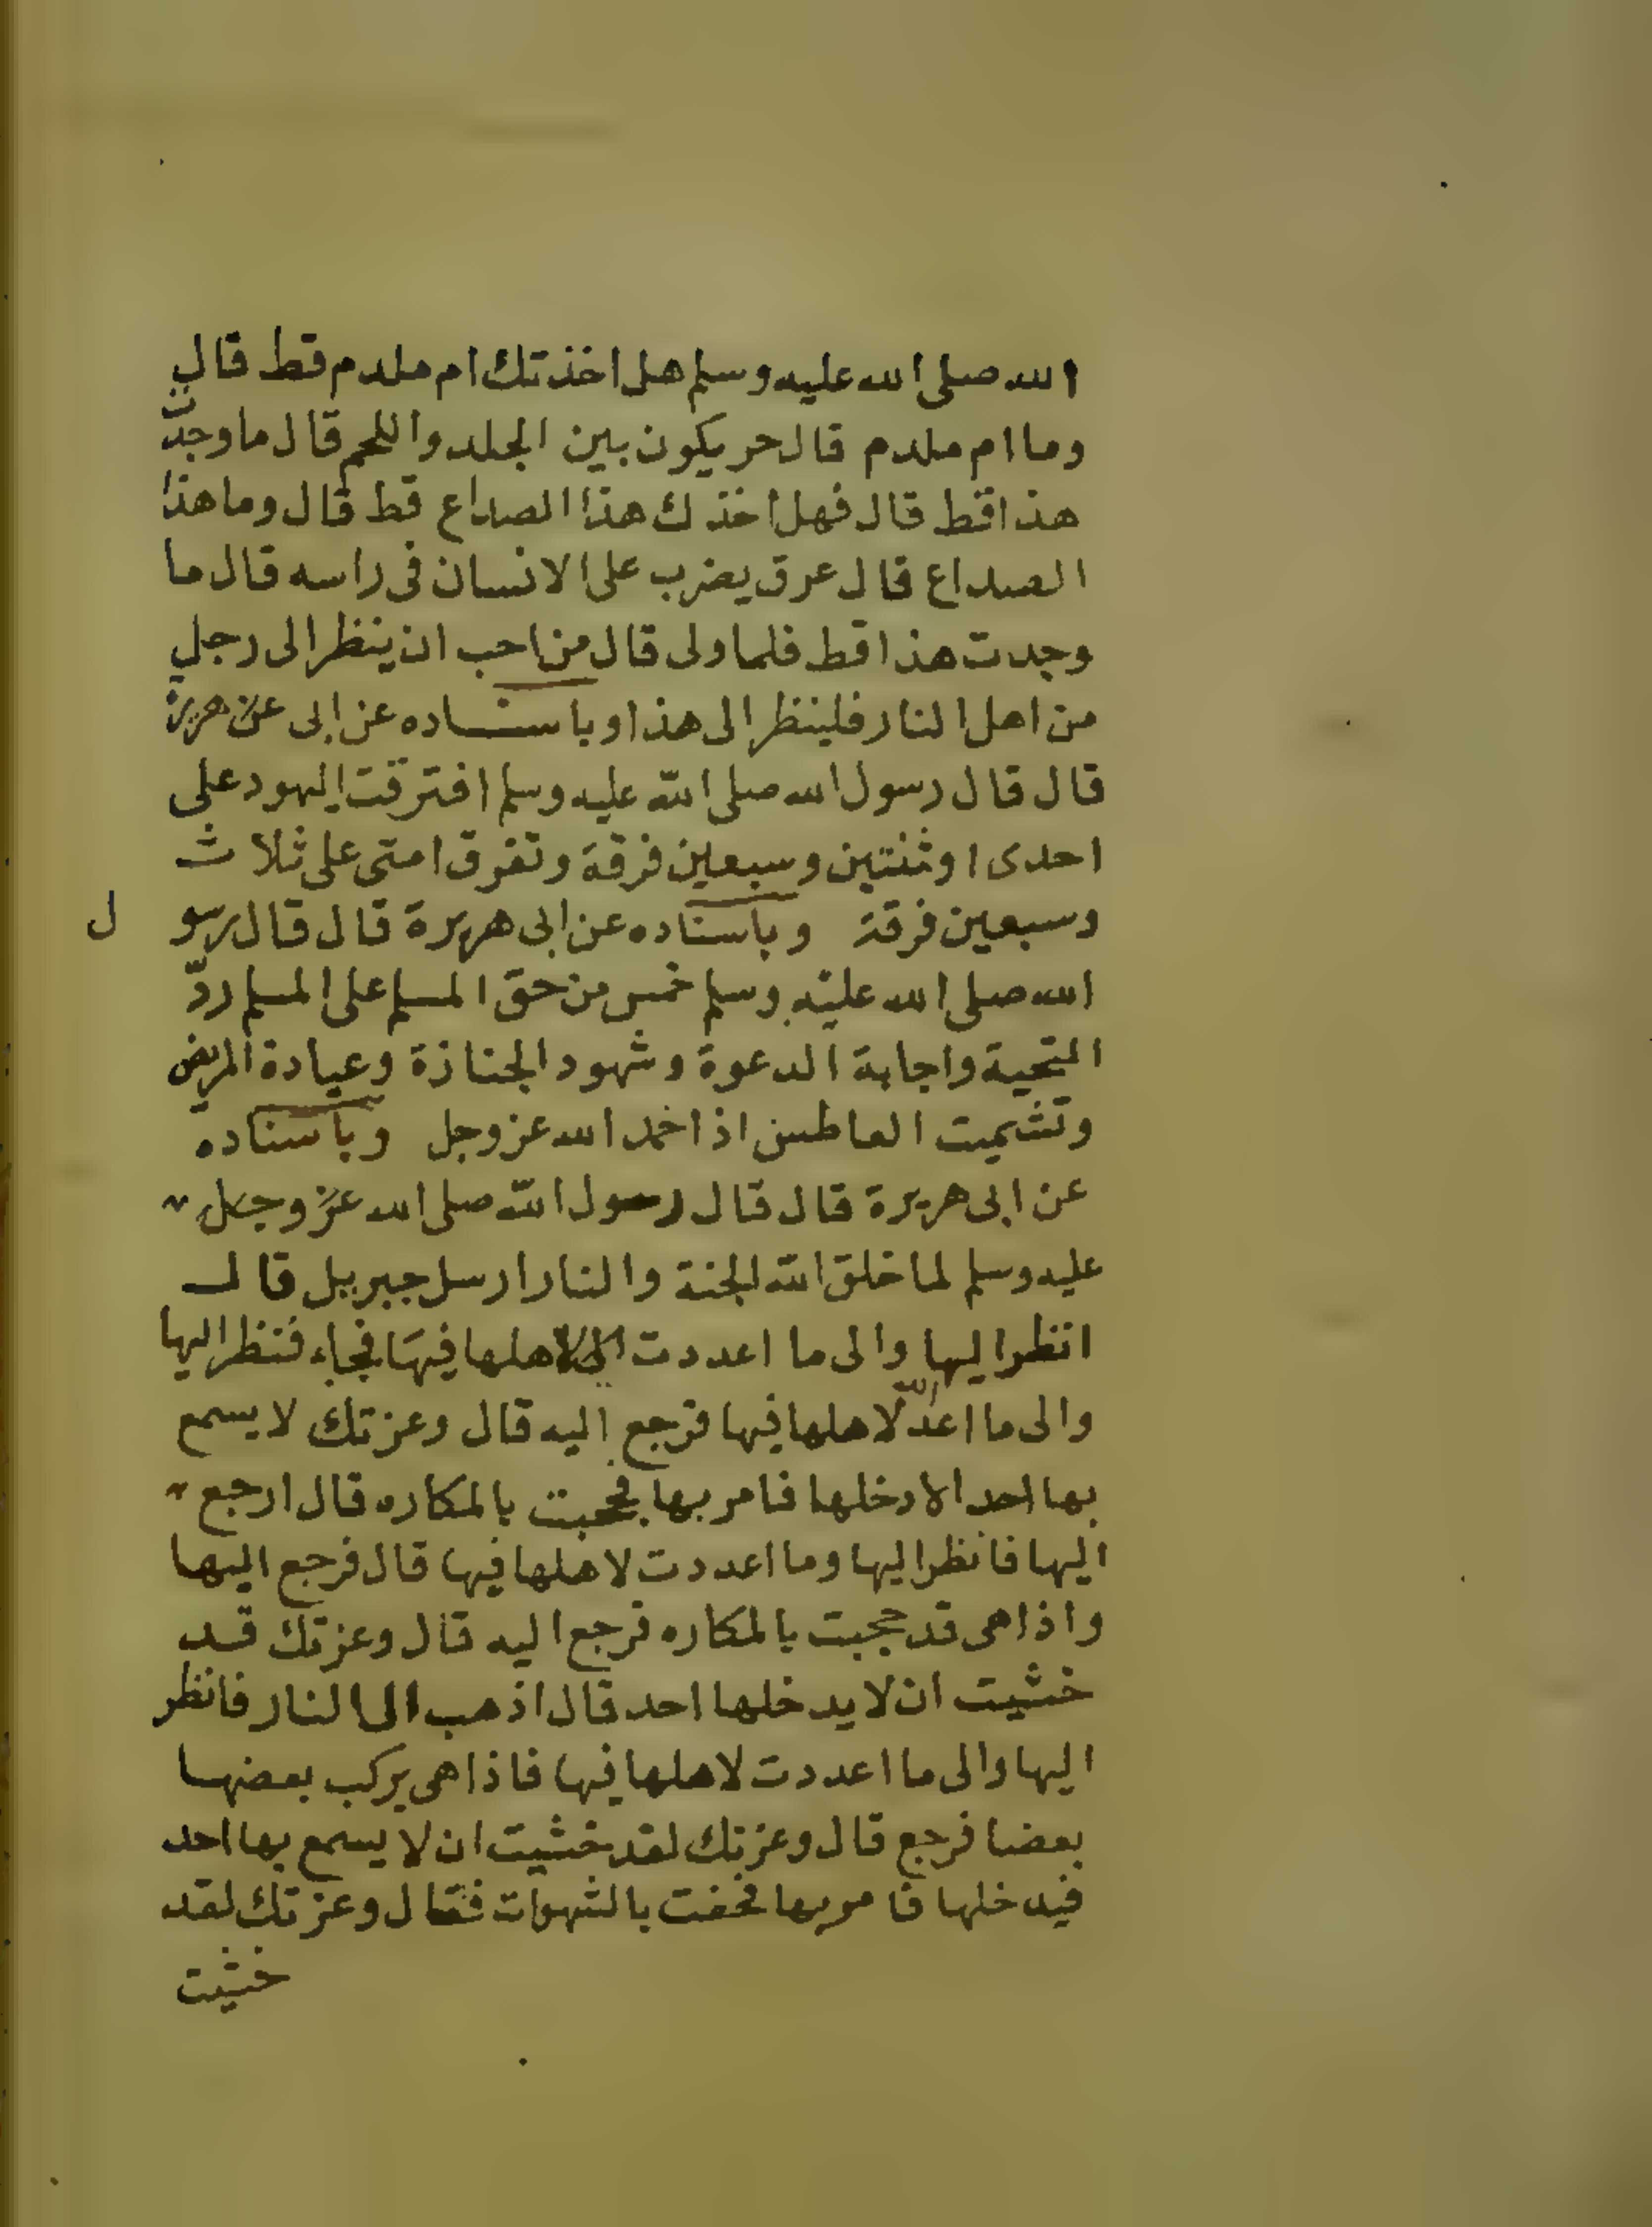 الله صلى الله عليه وسلم هل اخذتك ام ملدم قط قال
وما ام ملدم قال حر يكون بين الجلد واللحم قال ما وجدت
هذا قط قال فهل اخذك هذا الصداع قط قال وما هذا
الصداع قال عرق يضرب على الانسان فى راسه قال ما
وجدت هذا قط فلما ولى قال من احب ان ينظر الى رجل
من اهل النار فلينظر الى هذا وباسناده عن ابى عن هريرة
قال قال رسول الله صلى الله عليه وسلم افترقت اليهود على
احدى او ثنتين وسبعين فرقة وتفرق امتى على ثلاث
وسبعين فرقة وباسناده عن ابى هريرة قال قال رسول
الله صلى الله عليه وسلم خمس من حق المسلم على المسلم ردّ
التحية واجابة الدعوة وشهود الجنازة وعيادة المريض
وتشميت العاطس اذا حمد الله عز وجل وباسناده
عن ابى هريرة قال قال رسول الله صلى الله عزّ وجل
عليه وسلم لما خلق الله الجنة والنار ارسل جبريل قال
انظر اليها والى ما اعددت لاهلها فيها فجاء فنظر اليها
والى ما اعد الله لاهلها فيها فرجع اليه قال وعزتك لا يسمع
بها احد الا دخلها فامر بها فحجبت بالمكاره قال ارجع
اليها فانظر اليها وما اعددت لاهلها فيها قال فرجع اليها
واذا هى قد حجبت بالمكاره فرجع اليه قال وعزتك قد
خشيت ان لا يدخلها احد قال اذهب الى النار فانظر
اليها والى ما اعددت لاهلها فيها فاذا هى يركب بعضها
بعضا فرجع قال وعزتك لقد خشيت ان لا يسمع بها احد
فيدخلها فامر بها فحفت بالشهوات فقال وعزتك لقد
خشيت